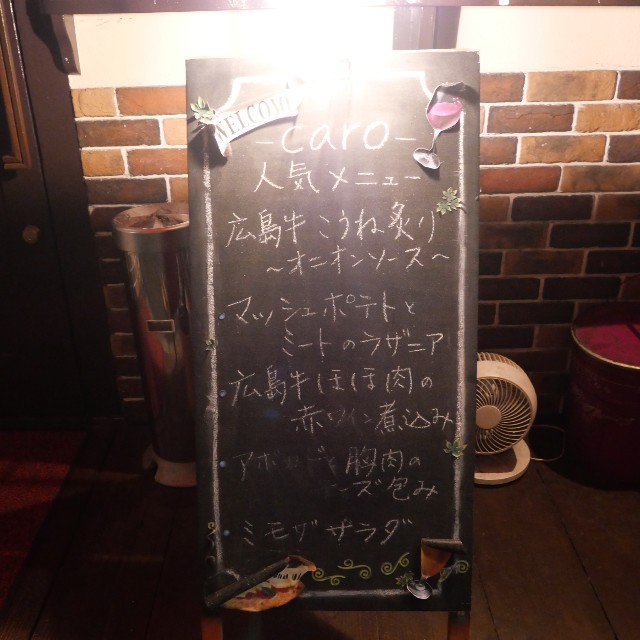 WELCOME
-caro-
人気メニュー
広島牛こうね炙り
〜オニオンソース〜
マッシュポテトと
ミートのラザニア
広島牛ほほ肉の
赤ワイン煮込み
胸肉の
ーズ包み
ミモザサラダ